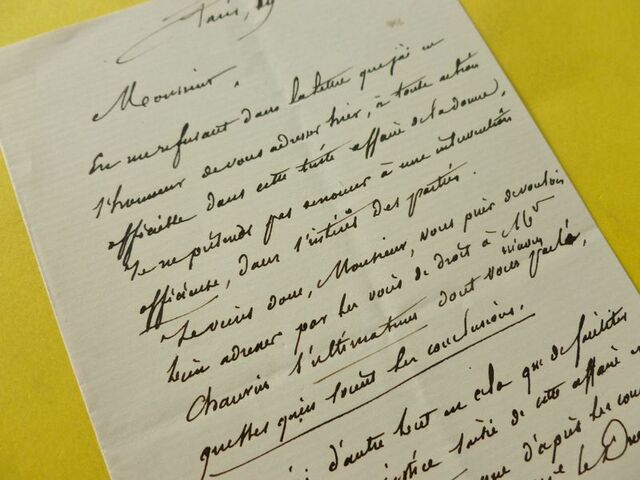 Paris, 19
Monsieur,
En me refusant dans la lettre que j'ai eu
l'honneur de vous adresser hier, à toute action
officielle dans cette triste affaire de la donne,
Je ne prétends pas renoncer à une intervention
officieuse, dans l'intérêt des parties.
Je viens donc, Monsieur, vous prier de vouloir
bien adresser par les voies de droit à Mr
Chauvin l'ultimatum dont vous parlé,
quelles qu'en soient les conclusions.
d'autre but en cela que de faciliter
de cette affaire
que d'après les
le